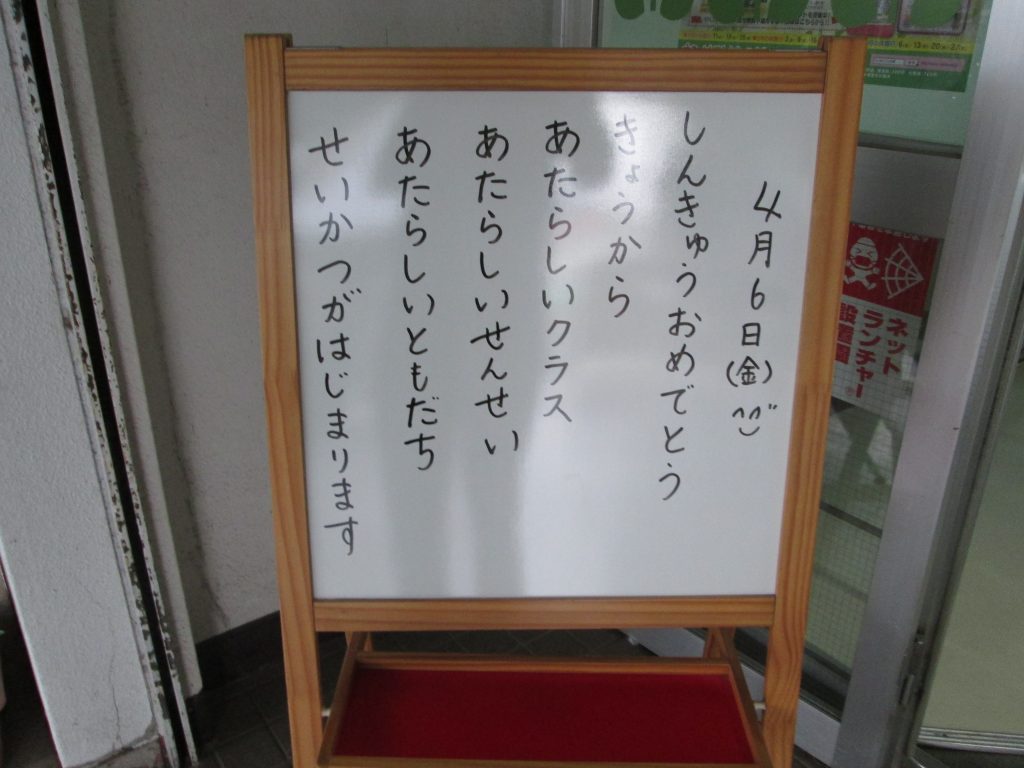 4月6日(金)
しんきゅうおめでとう
きょうから
あたらしいクラス
あたらしいせんせい
あたらしいともだち
せいかつがはじまります
ネット
ランチャー
設置園